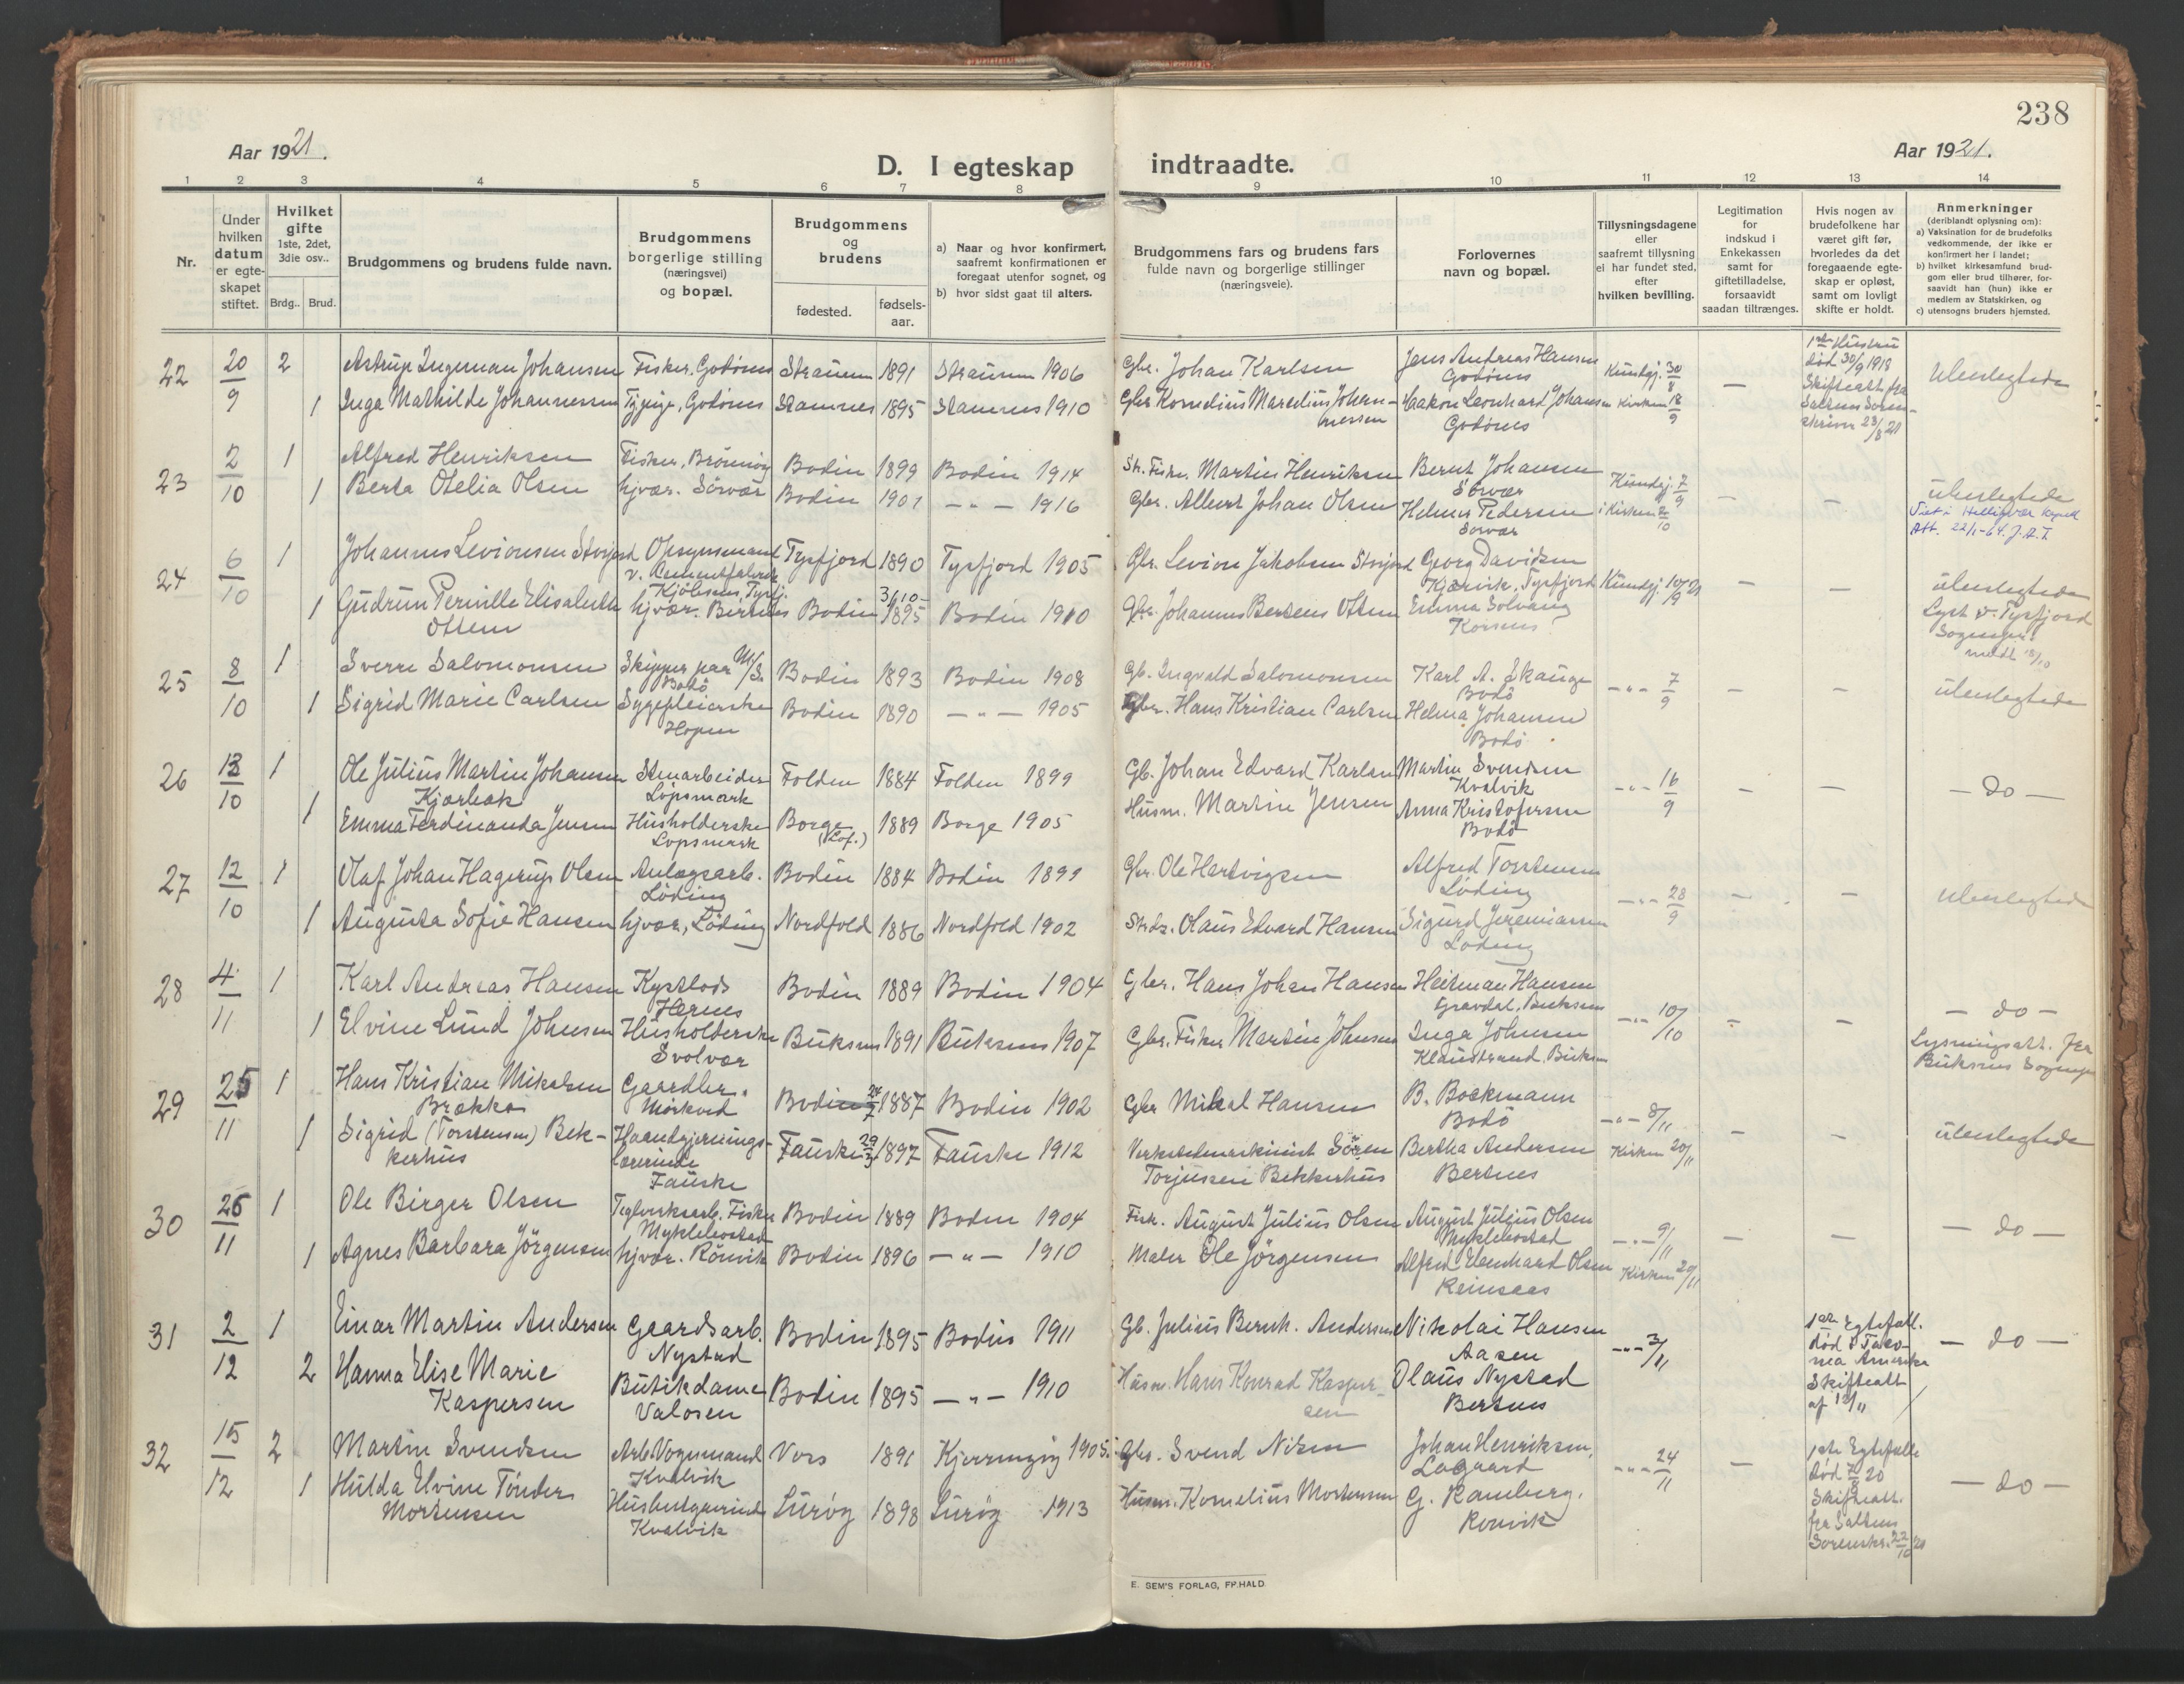 238
Aar 1921.
Aar 1921.
D. I egteskap indtraadte.
1 2 3 4 5 6 7 8 9 10 11 12 13 14
Nr.
Under hvilken datum er egte-skapet stiftet.
Hvilket gifte 1ste, 2det, 3die osv..
Brdg.. Brud.
Brudgommens og brudens fulde navn.
Brudgommens borgerlige stilling (næringsvei) og bopæl.
Brudgommens og brudens
fødested.
fødsels-aar.
a) Naar og hvor konfirmert, saafremt konfirmationen er foregaat utenfor sognet, og
b) hvor sidst gaat til alters.
Brudgommens fars og brudens fars fulde navn og borgerlige stillinger (næringsveie).
Forlovernes navn og bopæl.
Tillysningsdagene eller saafremt tillysning ei har fundet sted, efter hvilken bevilling.
Legitimation for indskud i Enkekassen samt for giftetilladelse, forsaavidt saadan tiltrænges.
Hvis nogen av brudefolkene har været gift før, hvorledes da det foregaaende egte-skap er opløst, samt om lovligt skifte er holdt.
Anmerkninger
(deriblandt oplysning om):
a) Vaksination for de brudefolks vedkommende, der ikke er konfirmert her i landet;
b) hvilket kirkesamfund brud-gom eller brud tilhører, for-saavidt han (hun) ikke er medlem av Statskirken, og
c) utensogns bruders hjemsted.
22 20/9 2 Astrup Ingeman Johansen Fisker, Godönes Straumen 1891 Straumen 1906 Gbr. Johan Karlsen Jens Andreas Hansen Godönes Kundgj. 30/8 — 1ste Hustru död 30/9 1918 Skifteatt. fra Saltens Soren-skriver 23/8 21 Ubeslegtede
1 Inga Mathilde Johannessen Godönes Stamnes 1895 Stamnes 1910 Gbr Kornelius Marselius Johan-nessen Haakon Leonhard Johansen Godönes Kirken 18/9
23 2/10 1 Alfred Henriksen Fisker, Brönnöy Bodin 1899 Bodin 1914 Martin Henriksen Bernt Johansen Sörvær Kundgj. 7/9 — — ubeslegtede
1 Berta Otelia Olsen hjvær. Sörvær Bodin 1901 — " — 1916 Gbr. Albert Johan Olsen Helmer Pedersen Sörvær i Kirken 2/10 Viet i Helligvær kapell Att. 22/1-64. J.A.T.
24 6/10 1 Johannes Levionsen Storjord Opsynsmand v. Cementfabrik Kjöbsnes, Tysfj. Tysfjord 1890 Tysfjord 1905 Gbr. Levion Jakobsen Storjord Georg Davidsen Kjærvik, Tysfjord Kundgj. — — ubeslegtede
1 Gudrun Pernille Elisabeth Ottsen hjvær. Bertnes Bodin 3/10 1895 Bodin 1910 Gbr. Johannes Berteus Ottsen Emma Solvang Korsnes Lyst v. Tysfjord Sogneprest
25 8/10 1 Sverre Salomonsen Skipper paa M/S. Bodö Bodin 1893 Bodin 1908 Gb. Ingvald Salomonsen Karl A. Skauge Bodö — " — 7/9 — — ubeslegtede
1 Sigrid Marie Carlsen Sygepleierske Hopen Bodin 1890 — " — 1905 Gbr. Hans Kristian Carlsen Helma Johansen Bodö
26 13/10 1 Ole Julius Martin Johansen Kjærbak Stenarbeider Löpsmark Folden 1884 Folden 1899 Gb. Johan Edvard Karlsen Martin Svendsen Kvalvik — " — 16/9 — — — do —
1 Emma Ferdinanda Jensen Husholderske Löpsmark Borge (Lof.) 1889 Borge 1905 Husm. Martin Jensen Anna Kristofersen Bodö
27 12/10 1 Olaf Johan Hagerup Olsen Anlægsarb. Löding Bodin 1884 Bodin 1899 Gbr. Ole Hartvigsen Alfred Torstensen Löding — " — 28/9 — — ubeslegtede
1 Augusta Sofie Hansen hjvær, Löding Nordfold 1886 Nordfold 1902 Olaus Edvard Hansen Sigurd Jeremiassen Löding
28 4/11 1 Karl Andreas Hansen Kystlods Hernes Bodin 1889 Bodin 1904 Gbr. Hans Johan Hansen Heitman Hansen Gravdal, Buksnes — " — 10/10 — — — do —
1 Elvine Lund Johnsen Husholderske Svolvær Buksnes 1891 Buksnes 1907 Gbr. Fisker Martin Johnsen Inga Johnsen Klaustrand, Buksnes Lysningsatt. fra Buksnes Sognepr.
29 25/11 1 Hans Kristian Mikalsen Brækka Gaardbr. Mörkved Bodin 24/7 1887 Bodin 1902 Gbr Mikal Hansen B. Boekmann Bodö — " — 8/11
1 Sigrid (Torstensen) Bek-kerhus Haandgjernings-lærerinde Fauske Fauske 29/3 1897 Fauske 1912 Verkstedmaskinist Sören Torjussen Bekkerhus Bertha Andersen Bertnes Kirken 20/11 — — ubeslegtede
30 26/11 1 Ole Birger Olsen Teglverksarb. Fisker Myklebostad Bodin 1889 Bodin 1904 Fisk. August Julius Olsen August Julius Olsen Myklebostad — " — 9/11 — — — do —
1 Agnes Barbara Jörgensen hjvær. Rönvik Bodin 1896 — " — 1910 Maler Ole Jörgensen Alfred Edenhard Olsen Reinsaas Kirken 20/11
31 2/12 1 Einar Martin Andersen Gaardsarb. Nystad Bodin 1895 Bodin 1911 Gb. Julius Bernh. Andersen Nikolai Hansen Aasen — " — 3/11 1ste Egtefæll. död i Taco-ma Amerika Skifteatt af 12/11 — do —
2 Hanna Elise Marie Kaspersen Butikdame Valosen Bodin 1895 — " — 1910 Husm. Hans Konrad Kasper-sen Olaus Nystad Bertnes
32 15/12 2 Martin Svendsen Arb. Vognmand Kvalvik Vors 1891 Kjerringöy 1905 Gbr. Svend Nilsen Johan Henriksen, Lagaard — " — 24/11 — 1ste Egtefælle död 20 Skifteatt. fra Saltens Sorenskr. 22/10 21 — do —
1 Hulda Elvine Tönder Mortensen Husbestyrerinde Kvalvik Luröy 1898 Luröy 1913 Husm. Kornelius Mortensen G. Ramberg, Rönvik
E. SEM'S FORLAG, FR.HALD